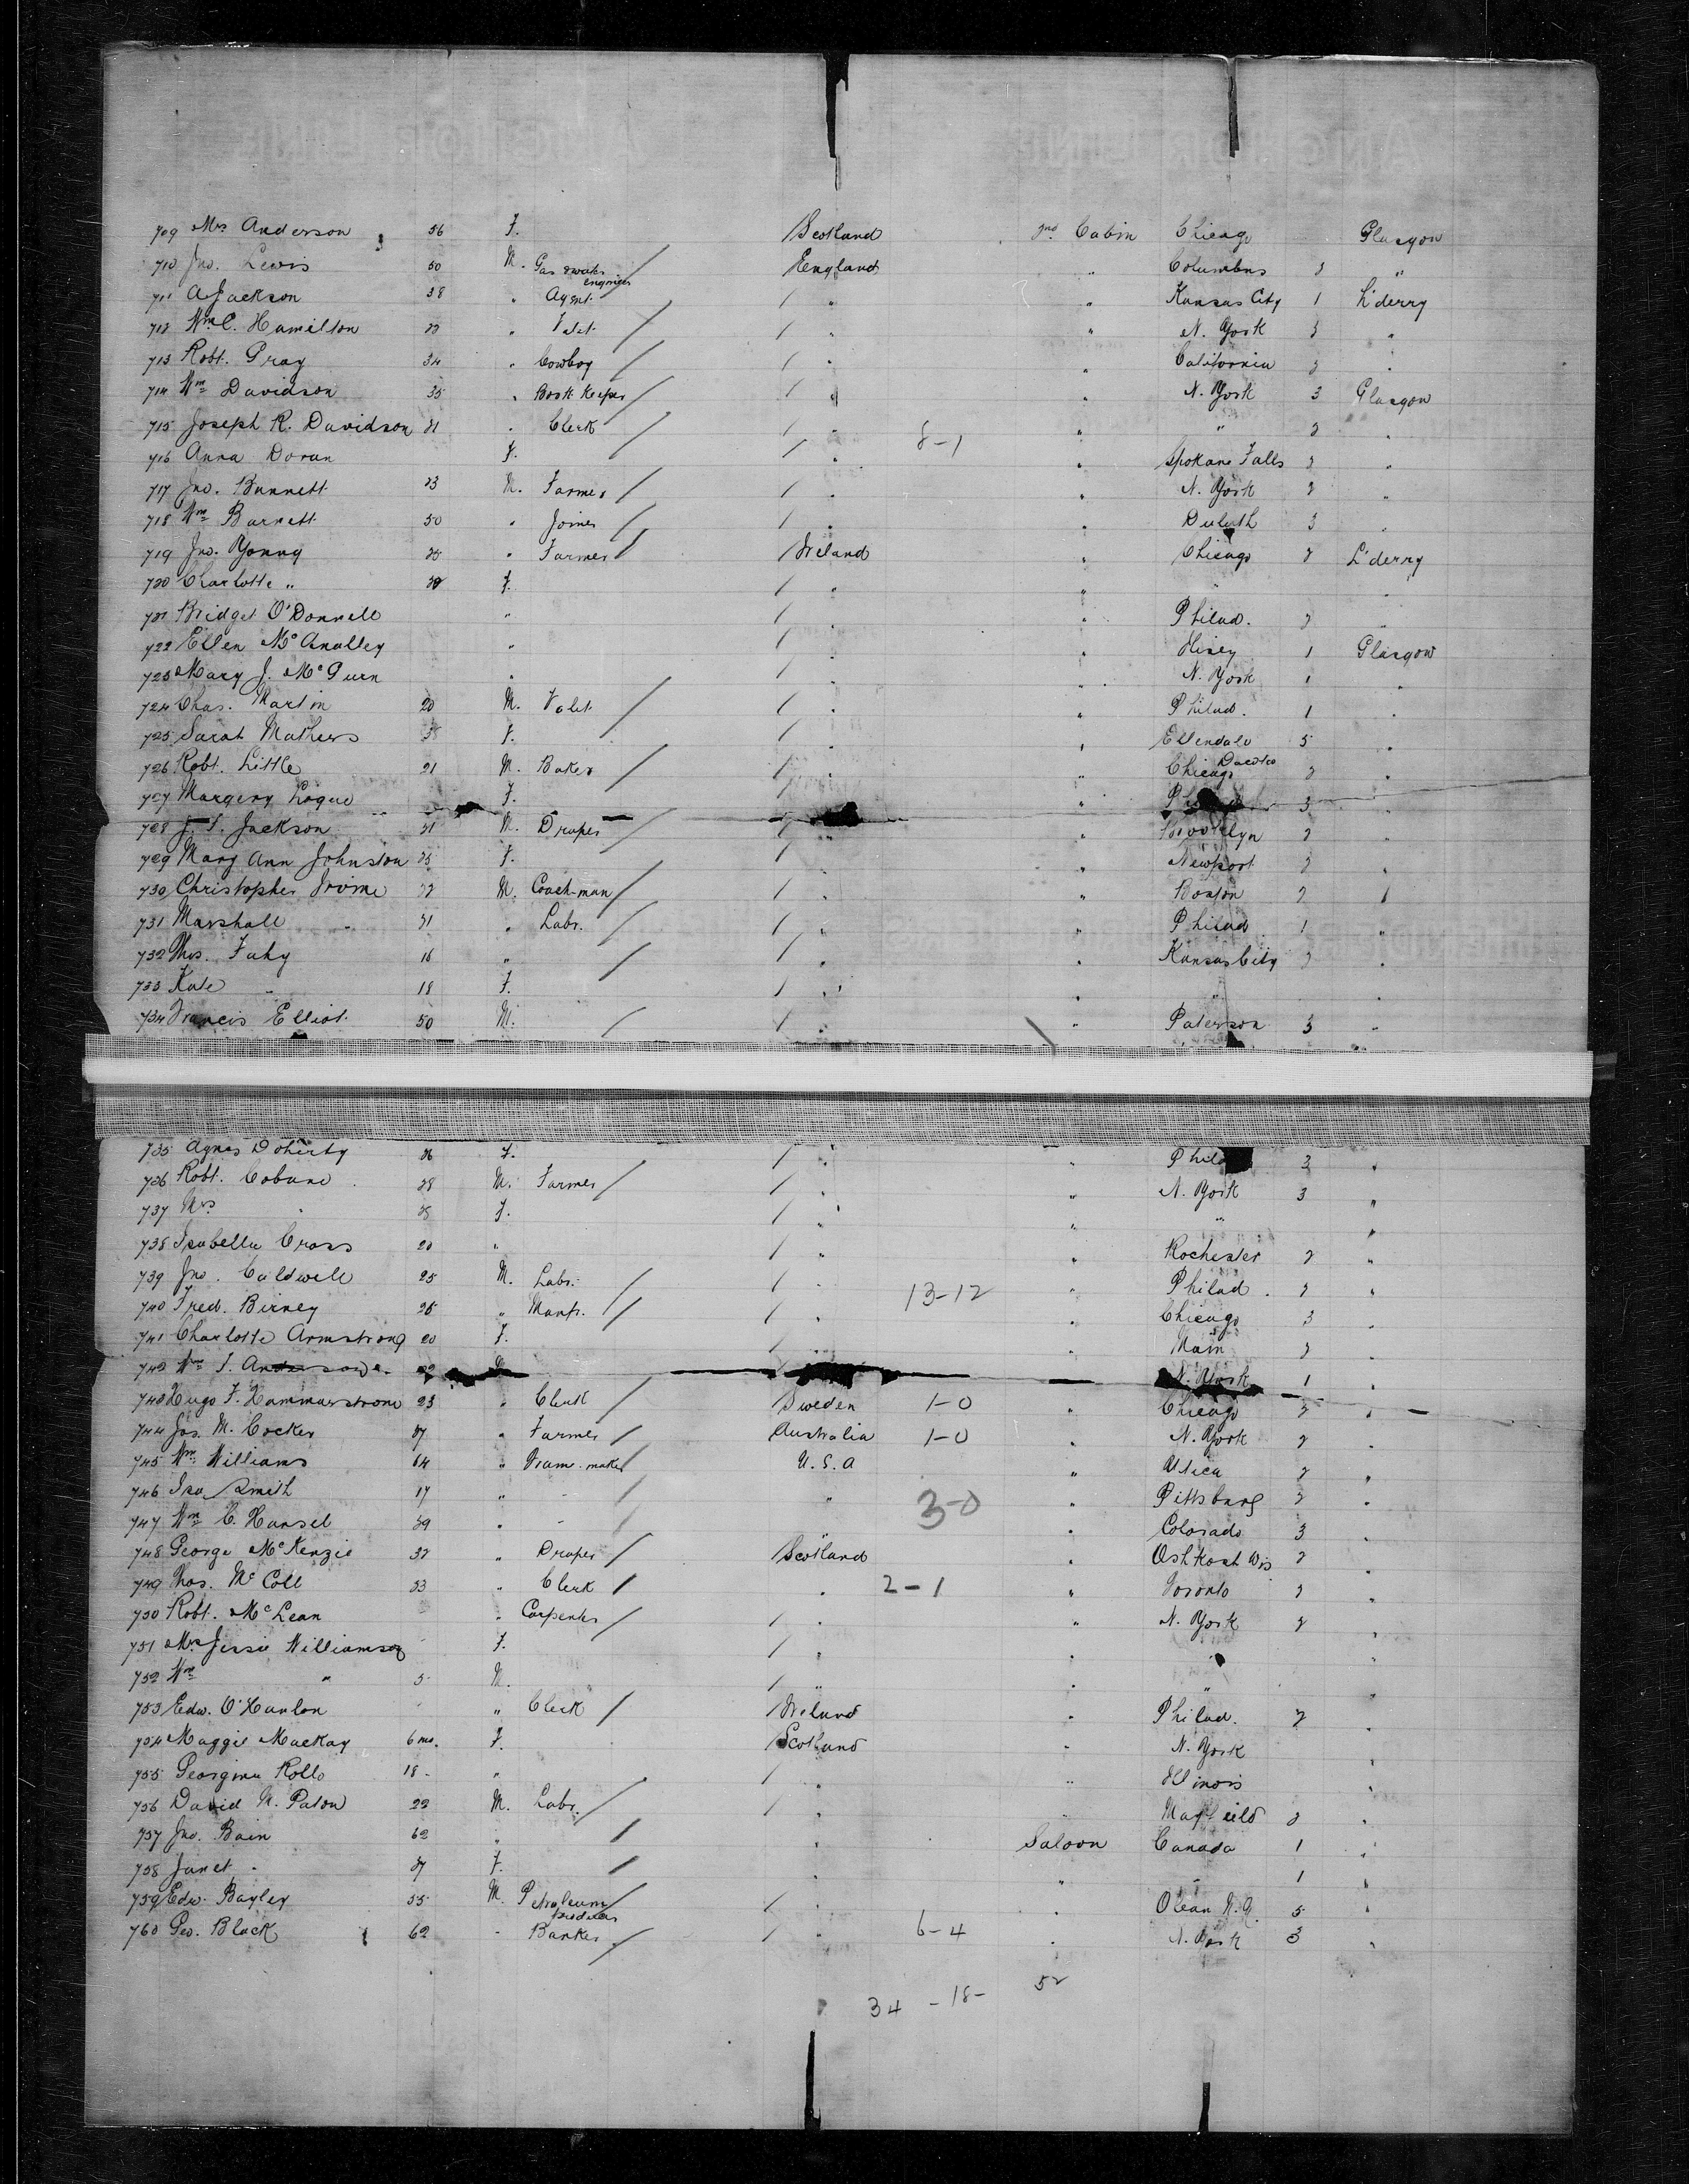 709 Mrs Anderson 56 F. Scotland 2nd Cabin Chicago Glasgow
710 Jno. Lewis 50 M. Gas & water engineer England " Columbus 2 "
711 A Jackson 38 " Agent " " Kansas City 1 L'derry
712 Wm C. Hamilton " Valet " " N. York 3 "
713 Robt. Gray 34 " Cowboy " " California 2 "
714 Wm Davidson 35 " Book Keeper " " N. York 3 Glasgow
715 Joseph R. Davidson 21 " Clerk " 8-1 " " 2 "
716 Anna Doran F. " " Spokane Falls 2 "
717 Jno. Bunnett 23 M. Farmer " " N. York 2 "
718 Wm Barnett 50 " Joiner " " Duluth 3 "
719 Jno. Young 25 " Farmer Ireland " Chicago 2 L'derry
720 Charlotte " F. " " " "
721 Bridget O'Donnell " " " Philad. 2 "
722 Ellen McAnulley " " " 1 Glasgow
723 Mary J. McGurn " " " N. York 1 "
724 Chas. Martin 20 M. Valet " " Philad. 1 "
725 Sarah Mathers F. " " Ellendale Dacota 5 "
726 Robt. Little 21 M. Baker " " Chicago 2 "
727 Margery Logue F. " 3 "
728 J. S. Jackson 21 M. Draper " " Brooklyn 2 "
729 Mary Ann Johnston 25 F. " Newport 2 "
730 Christopher Irvine 22 M. Coach-man " " Boston 2 "
731 Marshall " 21 " Labr. " " Philad. 1 "
732 Thos. Fahy 16 " " " Kansas City 2 "
733 Kate " 18 F. " " " "
734 Francis Elliot 50 M. " " Paterson 3 "
735 Agnes Doherty 26 F. " " Philad 3 "
736 Robt. Coburn 28 M. Farmer " " N. York 3 "
737 Mrs " 25 F. " " " "
738 Isabella Cross 20 " " " Rochester 2 "
739 Jno. Caldwell 25 M. Labr. " " Philad. 2 "
740 Fred. Birney 25 " Manfr. " 13-12 " Chicago 3 "
741 Charlotte Armstrong 20 F. " " Main 2 "
742 Wm J. Anderson 22 N. York 1 "
743 Hugo F. Hammarstrom 23 " Clerk Sweden 1-0 " Chicago 2 "
744 Jas. M. Cocker 27 " Farmer Australia 1-0 " N. York 2 "
745 Wm Williams 64 " Frame-maker U.S.A " Utica 2 "
746 Ira Smith 17 " " " 3-0 " Pittsburg 2 "
747 Wm C. Hansel 29 " " " " Colorado 3 "
748 George McKenzie 32 " Draper Scotland " Oshkosh Wis 2 "
749 Thos. McColl 23 " Clerk " 2-1 " Toronto 2 "
750 Robt. McLean " Carpenter " " N. York 2 "
751 Mrs Jessie Williamson F. " " " "
752 Wm " 5 M. " " " "
753 Edw. O'Hanlon " Clerk Ireland " Philad. 2 "
754 Maggie MacKay 6 mo. F. Scotland " N. York "
755 Georgina Rollo 18 " " " Illinois "
756 David N. Paton 22 M. Labr. " " Mayfield 2 "
757 Jno. Bain 62 " " Saloon Canada 1 "
758 Janet " 27 F. " " " 1 "
759 Edw. Bayley 55 M. Petroleum producer " " Olean N.Y. 5 "
760 Geo. Black 62 " Banker " 6-4 " N. York 3 "
34 - 18 - 52